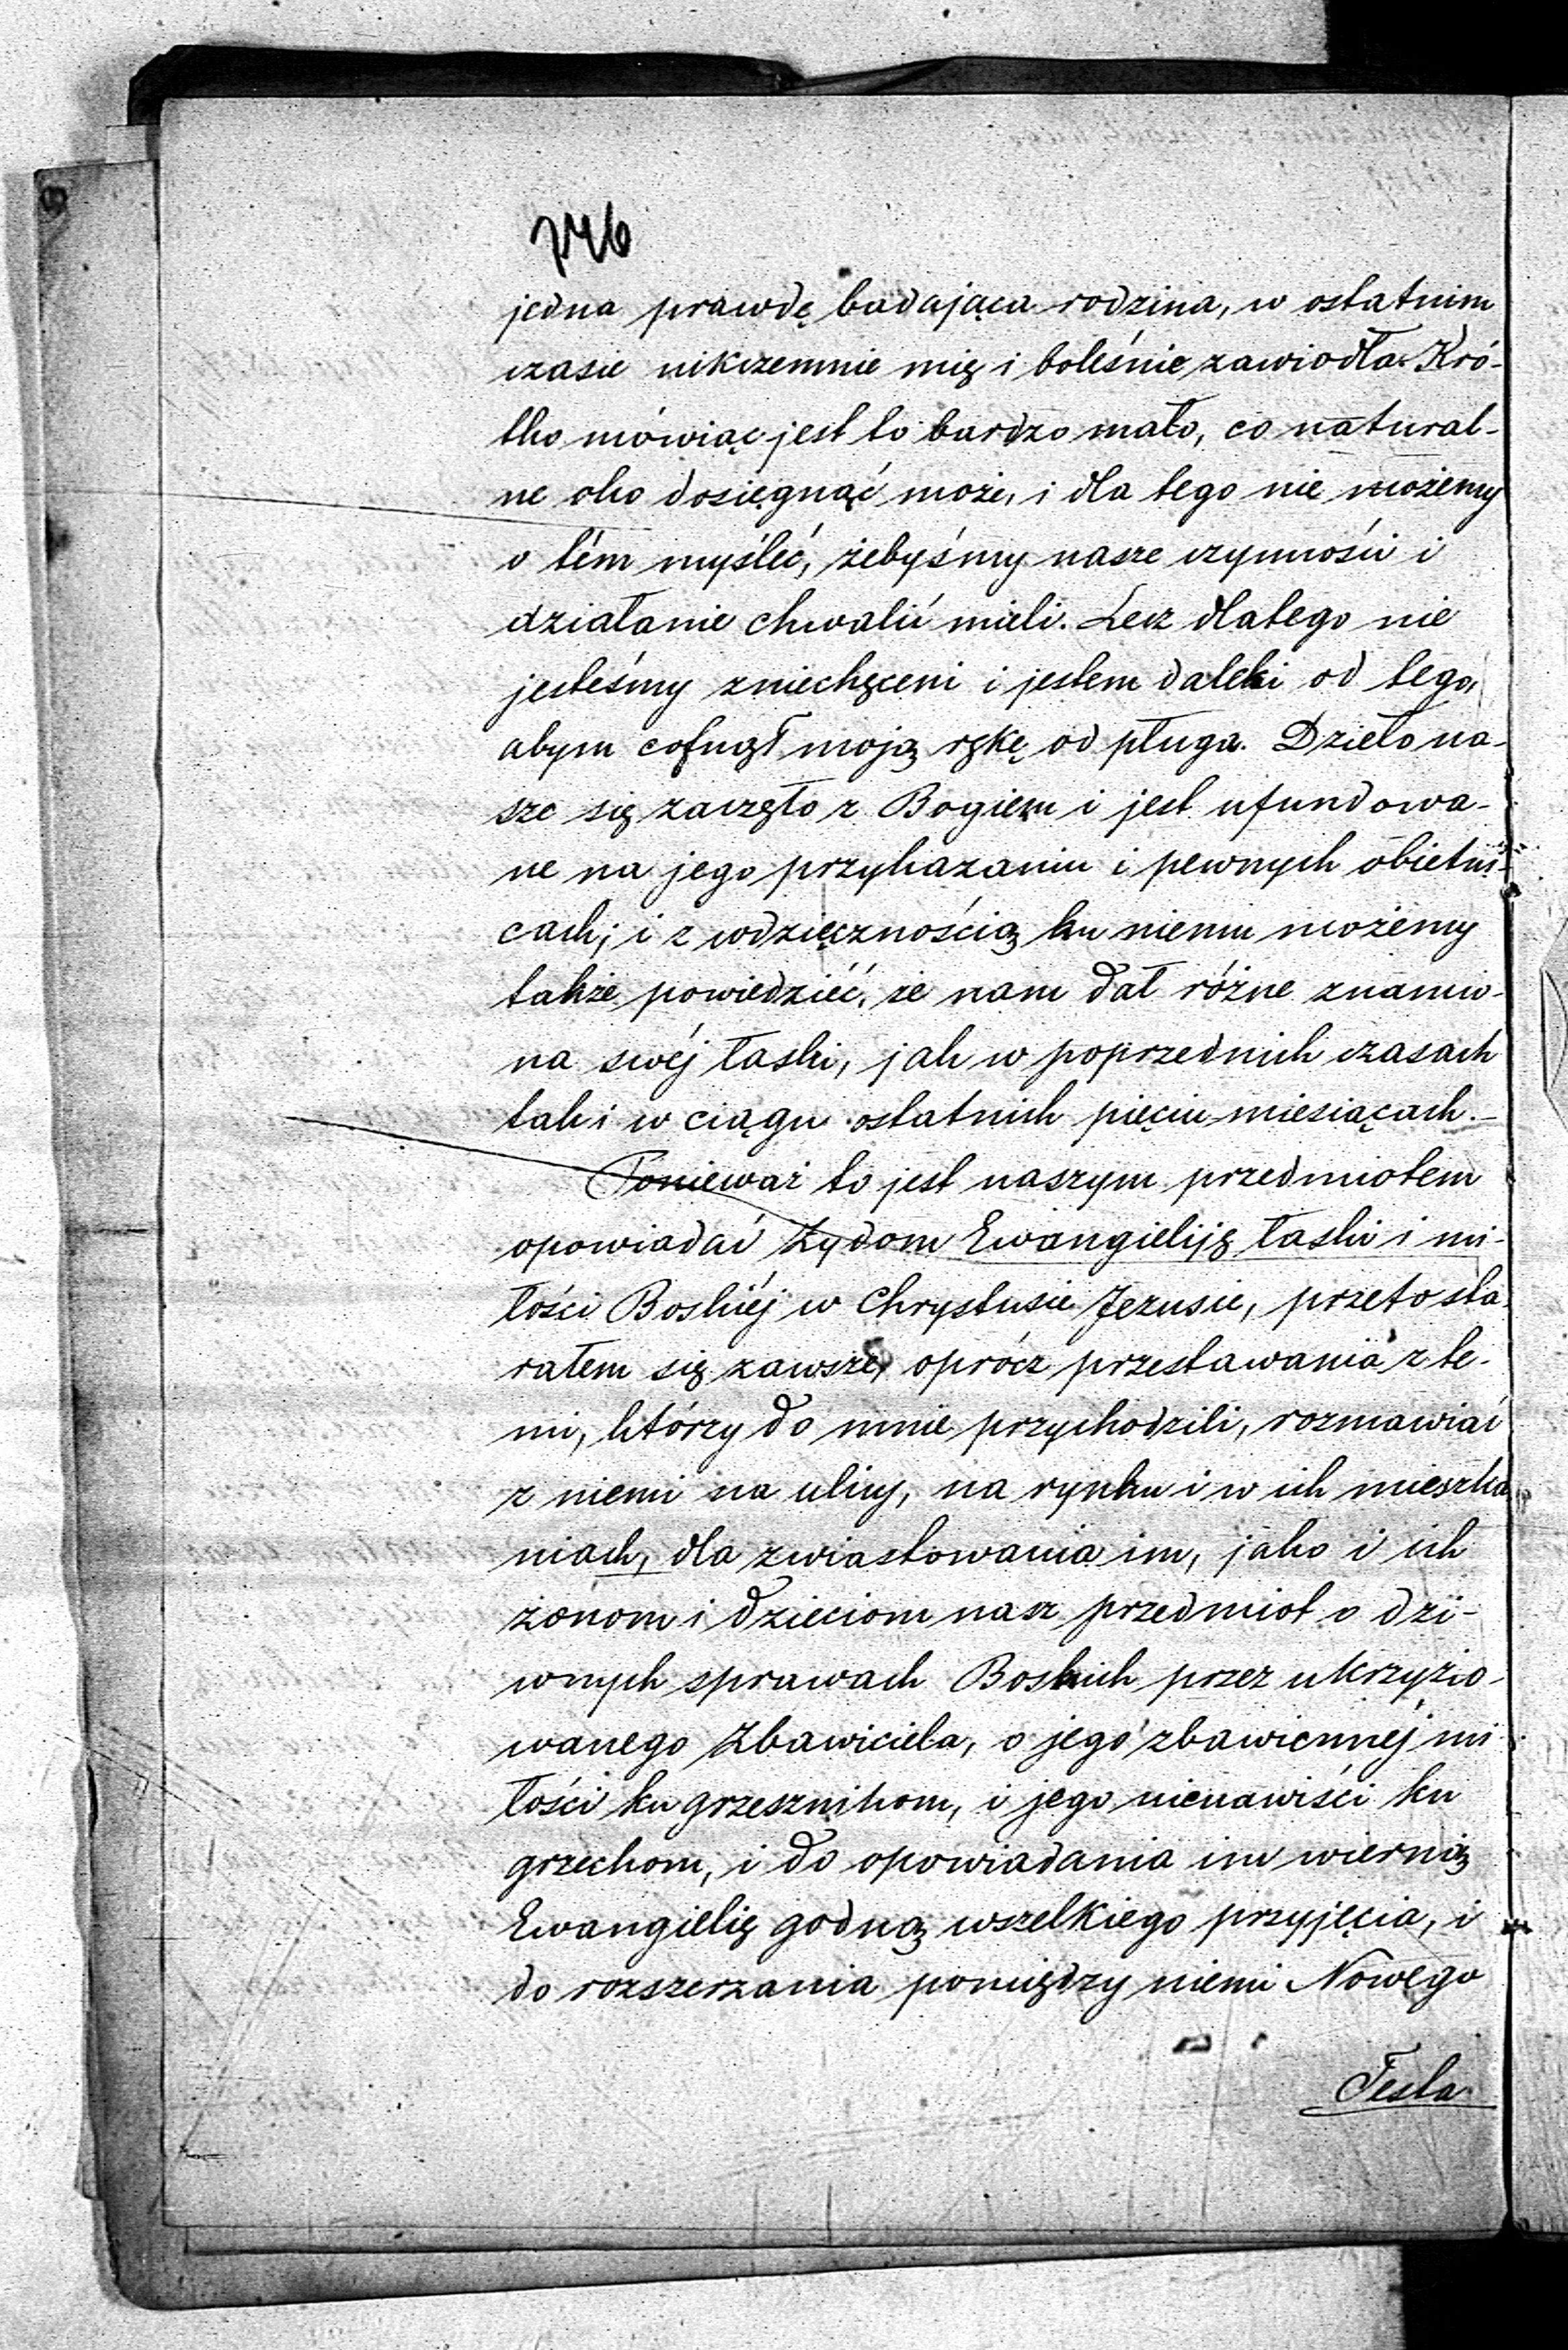 746
jedna prawdę badająca rodzina, w ostatnim
czasie nikczemnie mię i boleśnie zawiodła. Kró-
tko mówiąc jest to bardzo mało, co natural-
ne oko dosięgnąć może, i dla tego nie możemy
o tém myśleć, żebyśmy nasze czynności i
działanie chwalić mieli. Lecz dlatego nie
jesteśmy zniechęceni i jestem daleki od tego,
abym cofnął moją rękę od pługa. Dzieło na-
sze się zaczęło z Bogiem i jest ufundowa-
ne na jego przykazaniu i pewnych obietni-
cach; i z wdzięcznością ku niemu możemy
także powiedzieć, że nam dał różne znamio-
na swéj łaski, jak w poprzednich czasach
tak i w ciągu ostatnich pięciu miesiącach.—
Ponieważ to jest naszym przedmiotem
opowiadać Żydom Ewangieliję łaski i mi-
łości Boskiéj w Chrystusie Jezusie, przeto sta-
rałem się zawsze, oprócz przestawania z te-
mi, którzy do mnie przychodzili, rozmawiać
z niemi na ulicy, na rynku i w ich mieszka
niach, dla zwiastowania im, jako i ich
żonom i dzieciom nasz przedmiot o dzi-
wnych sprawach Boskich przez ukrzyżo-
wanego Zbawiciela, o jego zbawiennéj mi
łości ku grzesznikom, i jego nienawiści ku
grzechom, i do opowiadania im wierną
Ewangielię godną wszelkiego przyjęcia, i
do rozszerzania pomiędzy niemi Nowego
Testa